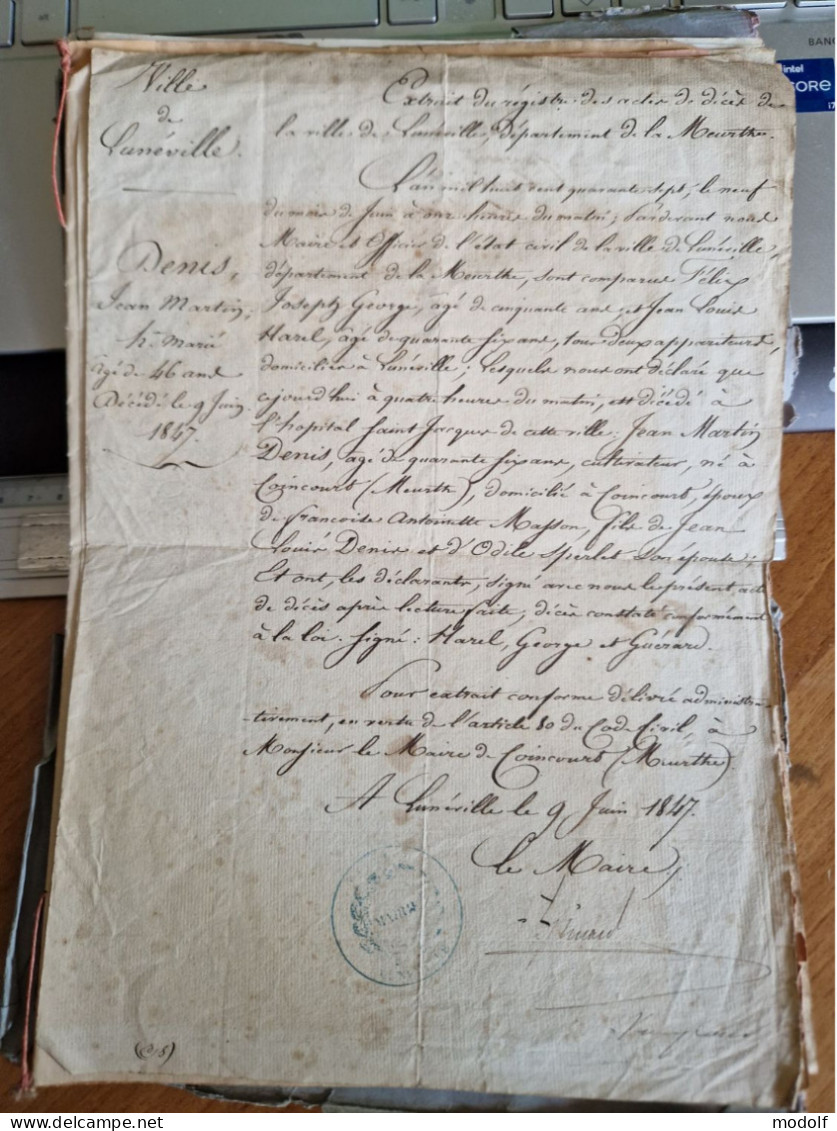 Ville
de
Lunéville.
Denis,
Jean Martin,
he. Marié
âgé de 46 ans
Décédé le 9 Juin
1847.
Extrait du régistre des actes de décès de
la ville de Lunéville, département de la Meurthe.
L'an mil huit cent quarante sept, le neuf
du mois de Juin à onze heures du matin; Pardevant nous
Maire et Officier de l'état civil de la ville de Lunéville,
département de la Meurthe, sont comparus Félix
Joseph George, agé de cinquante ans; et Jean Louis
Harel, âgé de quarante six ans, tous deux appariteurs,
domiciliés à Lunéville; Lesquels nous ont déclaré que
cejourd'hui à quatre heures du matin, est décédé à
l'hopital Saint Jacques de cette ville: Jean Martin
Denis, agé de quarante six ans, cultivateur, né à
Coincourt (Meurthe), domicilié à Coincourt, époux
de Françoise Antoinette Masson, fils de Jean
Louis Denis et d'Odile Sperlet son épouse;
Et ont, les déclarants, signé avec nous le présent acte
de décès après lecture faite; décès constaté conformément
à la loi. Signé: Harel, George et Guérard.
Pour extrait conforme délivré administra-
-tivement, en vertu de l'article 80 du Code Civil, à
Monsieur le Maire de Coincourt (Meurthe).
A Lunéville le 9 Juin 1847.
Le Maire,
MAIRIE
BANG
intel
CORE
i7
delcampe.net
modolf